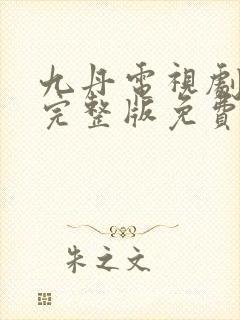 九丹電視劇
完整版免費
朱之文